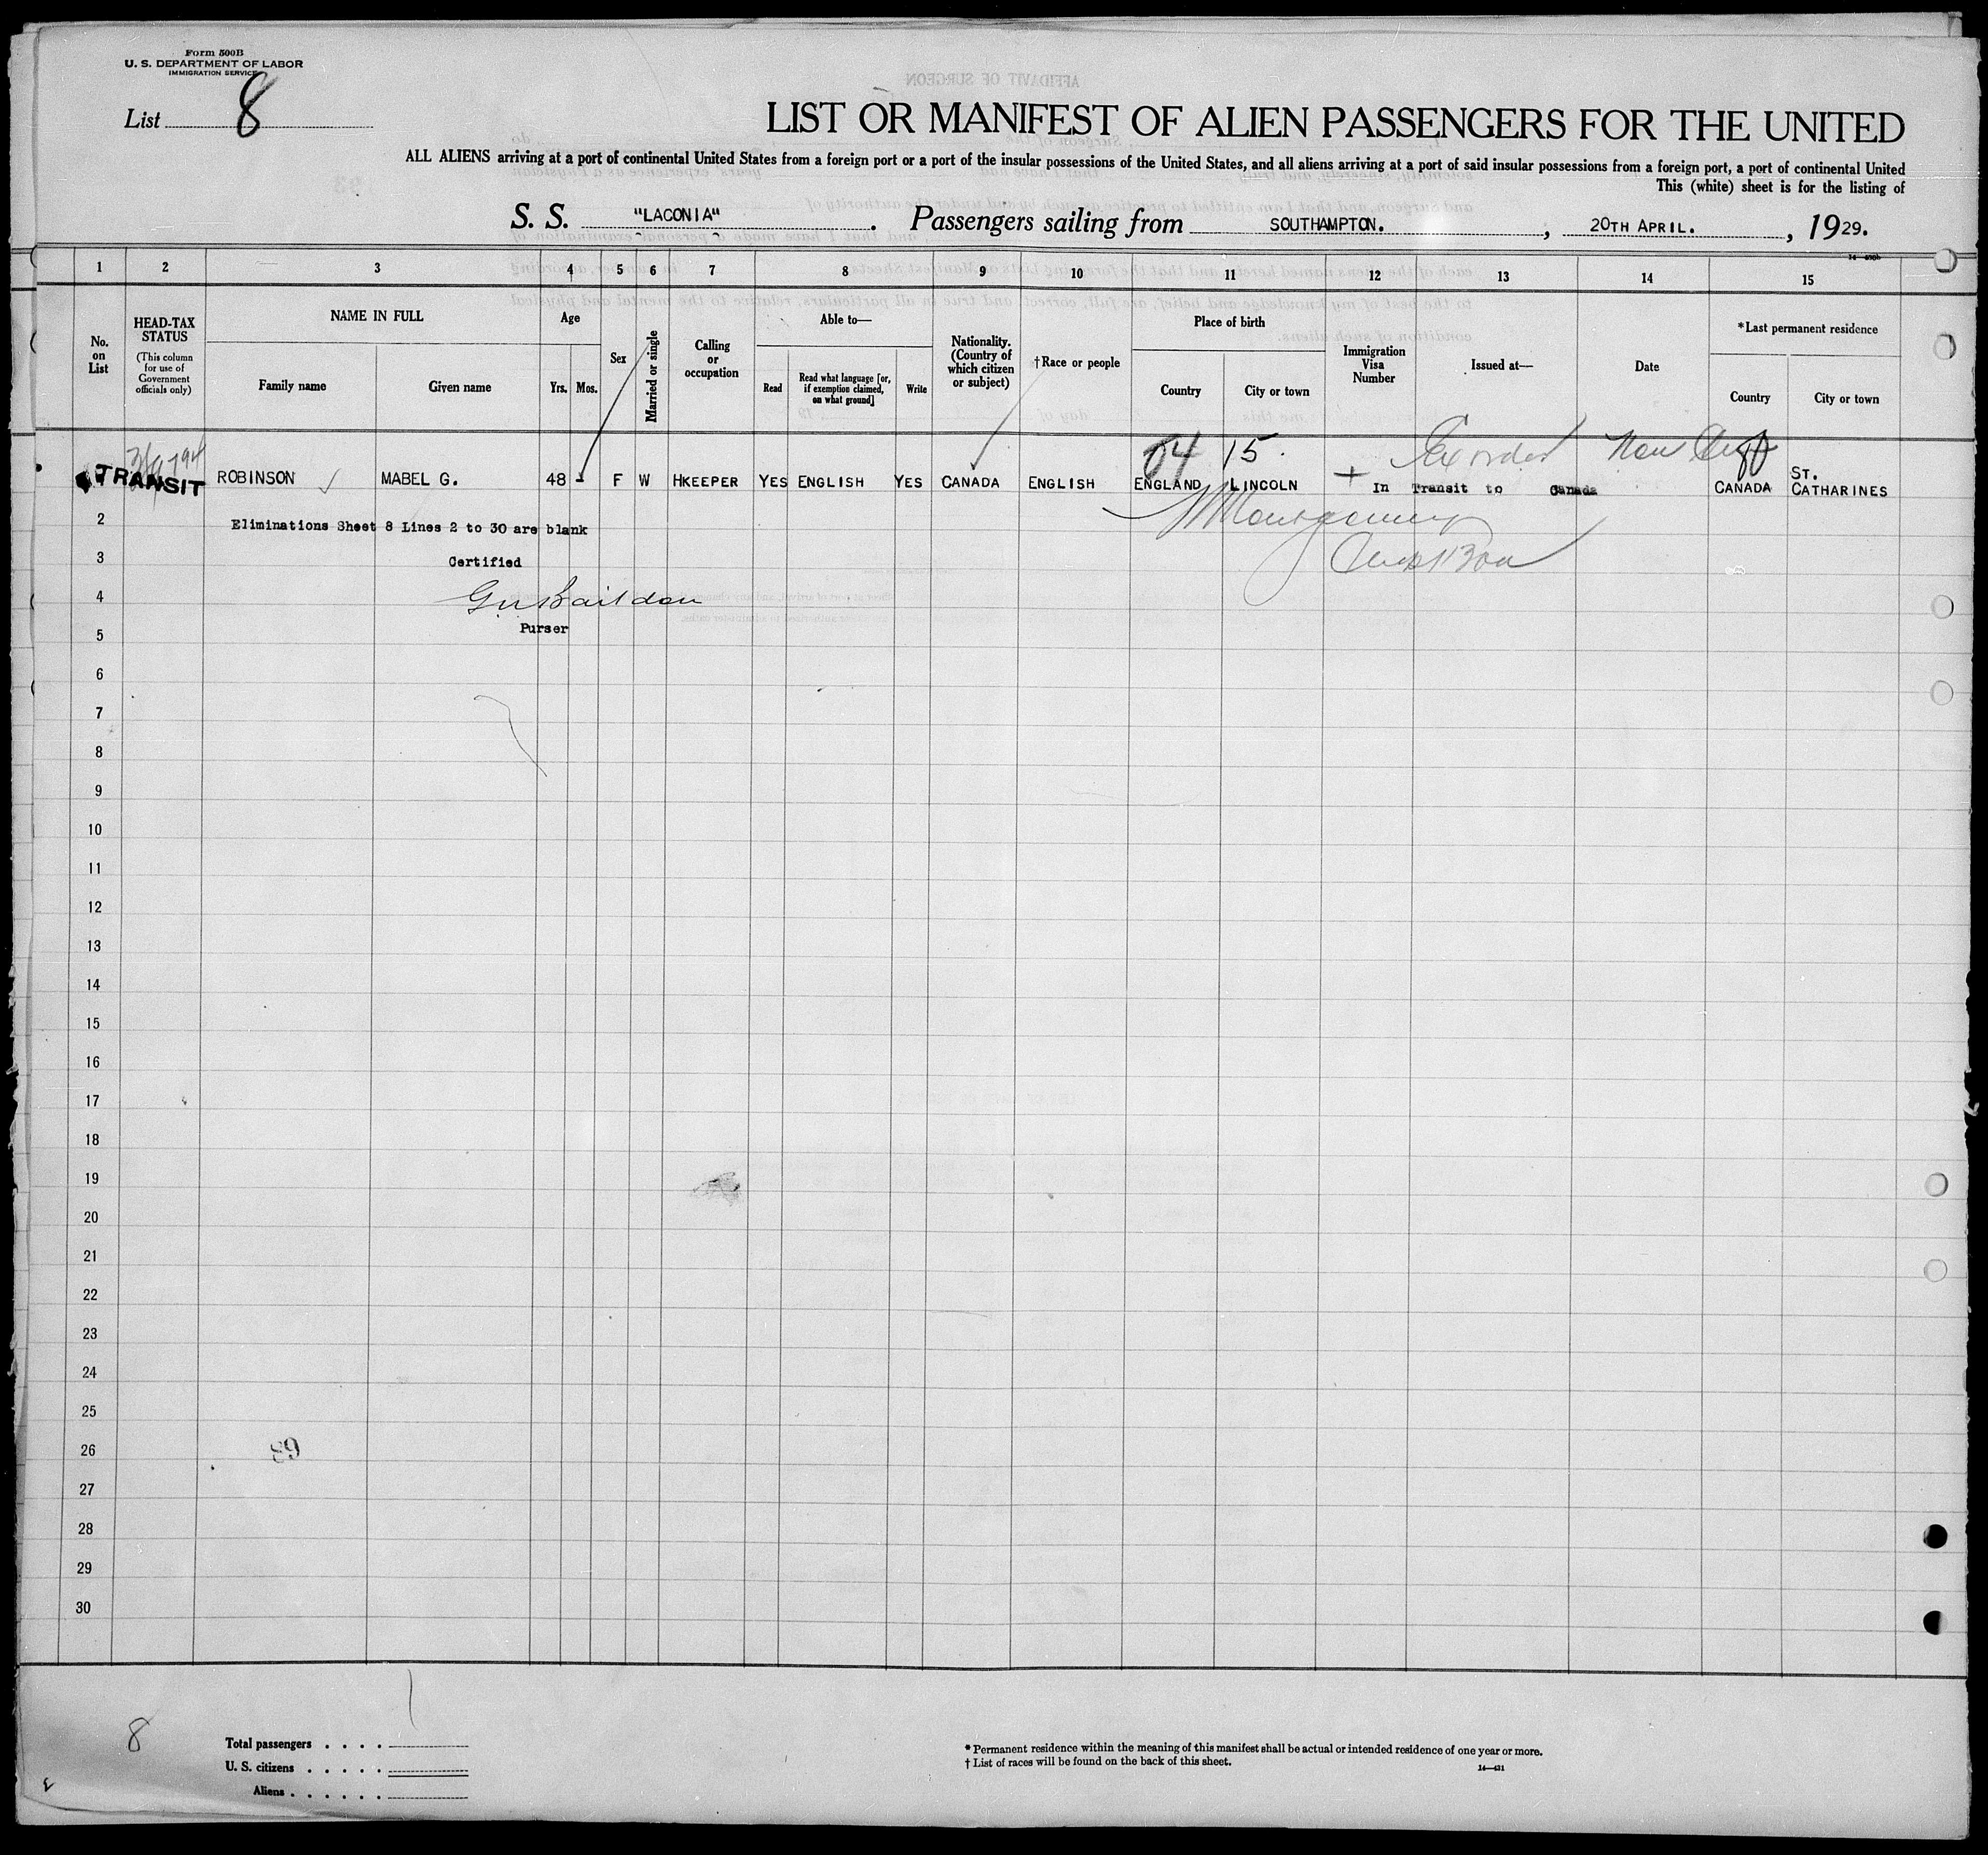 Form 500B
U. S. DEPARTMENT OF LABOR
IMMIGRATION SERVICE
List 8
LIST OR MANIFEST OF ALIEN PASSENGERS FOR THE UNITED
ALL ALIENS arriving at a port of continental United States from a foreign port or a port of the insular possessions of the United States, and all aliens arriving at a port of said insular possessions from a foreign port, a port of continental United
This (white) sheet is for the listing of
S. S. "LACONIA". Passengers sailing from SOUTHAMPTON. , 20TH APRIL. , 1929.
1 2 3 4 5 6 7 8 9 10 11 12 13 14 15
No. on List
HEAD-TAX STATUS (This column for use of Government officials only)
NAME IN FULL
Family name Given name
Age
Yrs. Mos.
Sex
Married or single
Calling or occupation
Able to—
Read Read what language [or, if exemption claimed, on what ground] Write
Nationality. (Country of which citizen or subject)
†Race or people
Place of birth
Country City or town
Immigration Visa Number
Issued at—
Date
*Last permanent residence
Country City or town
04 15.
TRANSIT ROBINSON MABEL G. 48 - F W HKEEPER YES ENGLISH YES CANADA ENGLISH ENGLAND LINCOLN In Transit to Canada CANADA ST. CATHARINES
2 Eliminations Sheet 8 Lines 2 to 30 are blank
Montgomery
3 Certified
4
5 Purser
6
7
8
9
10
11
12
13
14
15
16
17
18
19
20
21
22
23
24
25
26
27
28
29
30
8
Total passengers . . . .
U. S. citizens . . . . .
Aliens . . . . . .
* Permanent residence within the meaning of this manifest shall be actual or intended residence of one year or more.
† List of races will be found on the back of this sheet.
14—431